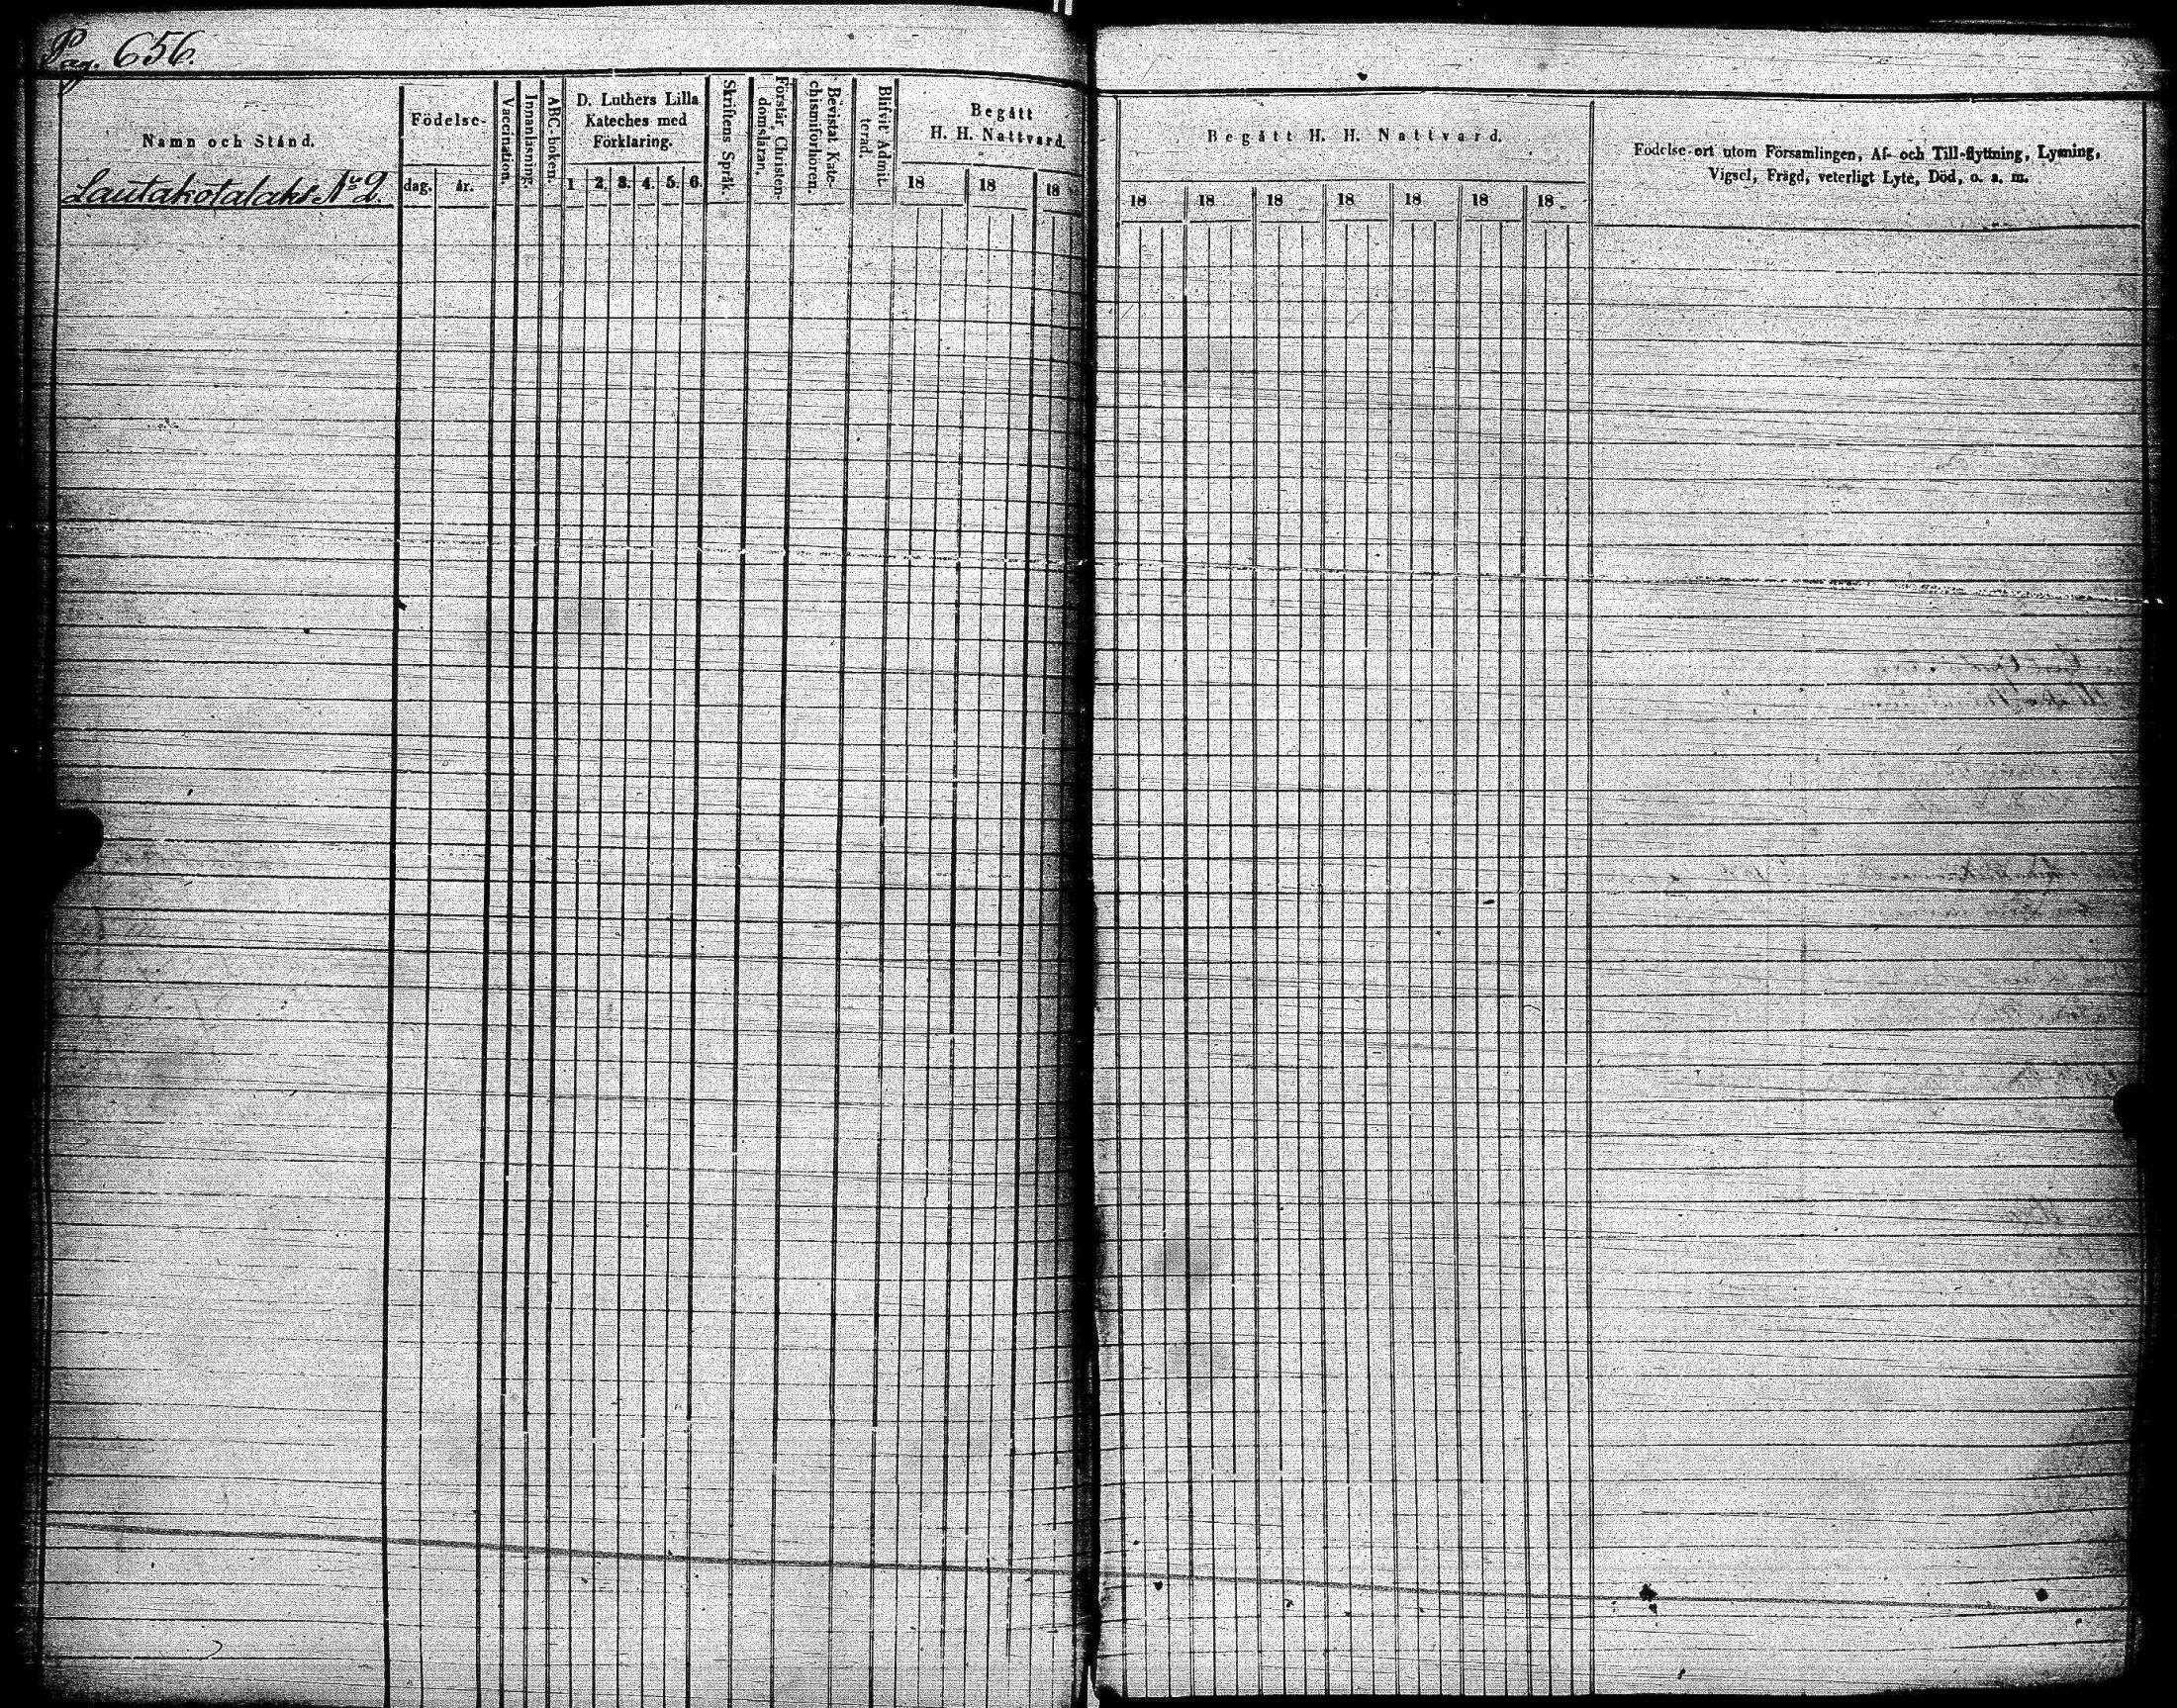 Pag. 656.
Namn och Stånd.
Lautakotalaks No 2.
Födelse-
dag. år.
Vaccination.
Innanläsning.
ABC-boken.
D. Luthers Lilla
Kateches med
Förklaring.
1 2. 3. 4. 5. 6.
Skriftens Språk.
Förstår Christen-
domsläran.
Bevistat Kate-
chismiförhören.
Blifvit Admit-
terad.
Begått
H. H. Nattvard.
18 18 18
Begått H. H. Nattvard.
18 18 18 18 18 18 18
Födelse-ort utom Församlingen, Af- och Till-flyttning, Lysning,
Vigsel, Frägd, veterligt Lyte, Död, o. s. m.